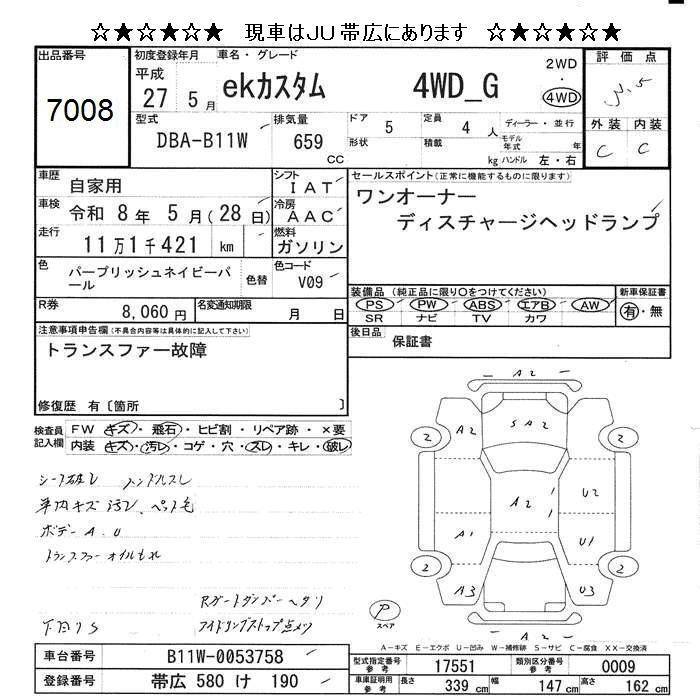 ☆★☆★☆★ 現車はJU帯広にあります ☆★☆★☆★
出品番号 初度登録年月 車名・グレード 2WD 評価点
7008 平成 27 5月 ekカスタム 4WD_G ・ 4WD
型式 排気量 ドア 5 定員 4人 ディーラー・並行 外装 内装
DBA-B11W 659 cc 形状 積載 kg モデル年式 年 C C
ハンドル 左・右
車歴 自家用 シフト IAT セールスポイント(正常に機能するものに限ります)
車検 令和 8年 5月(28日) 冷房 AAC ワンオーナー
走行 11万1千421 km 燃料 ガソリン ディスチャージヘッドランプ
色 パープリッシュネイビーパール 色替 色コード V09
装備品(純正品に限り○をつけてください) 新車保証書
PS PW ABS エアB AW 有・無
SR ナビ TV カワ
R券 8,060円 名変通知期限 月 日
後日品 保証書
注意事項申告欄(不具合内容等は具体的に記入して下さい)
トランスファー故障
修復歴 有〔箇所 〕
検査員記入欄 FW キズ・飛石・ヒビ割・リペア跡・×要
内装 キズ・汚レ・コゲ・穴・スレ・キレ・破レ
シート破レ ハンドルスレ
車内キズ汚レ、ペット毛
ボデーA.U
トランスファーオイルもれ
Rゲートダンパーヘタリ
下回りS アイドリングストップ点メツ
A2
A2 SA2
2 2
A2 U2
A1 U1
2 2
A3 U3
A2
P スペア
A-キズ E-エクボ U-凹み W-補修跡 S-サビ C-腐食 XX-交換済
車台番号 B11W-0053758 型式指定番号 参考 17551 類別区分番号 参考 0009
登録番号 帯広 580 け 190 車庫証明用 参考 長さ 339 cm 幅 147 cm 高さ 162 cm